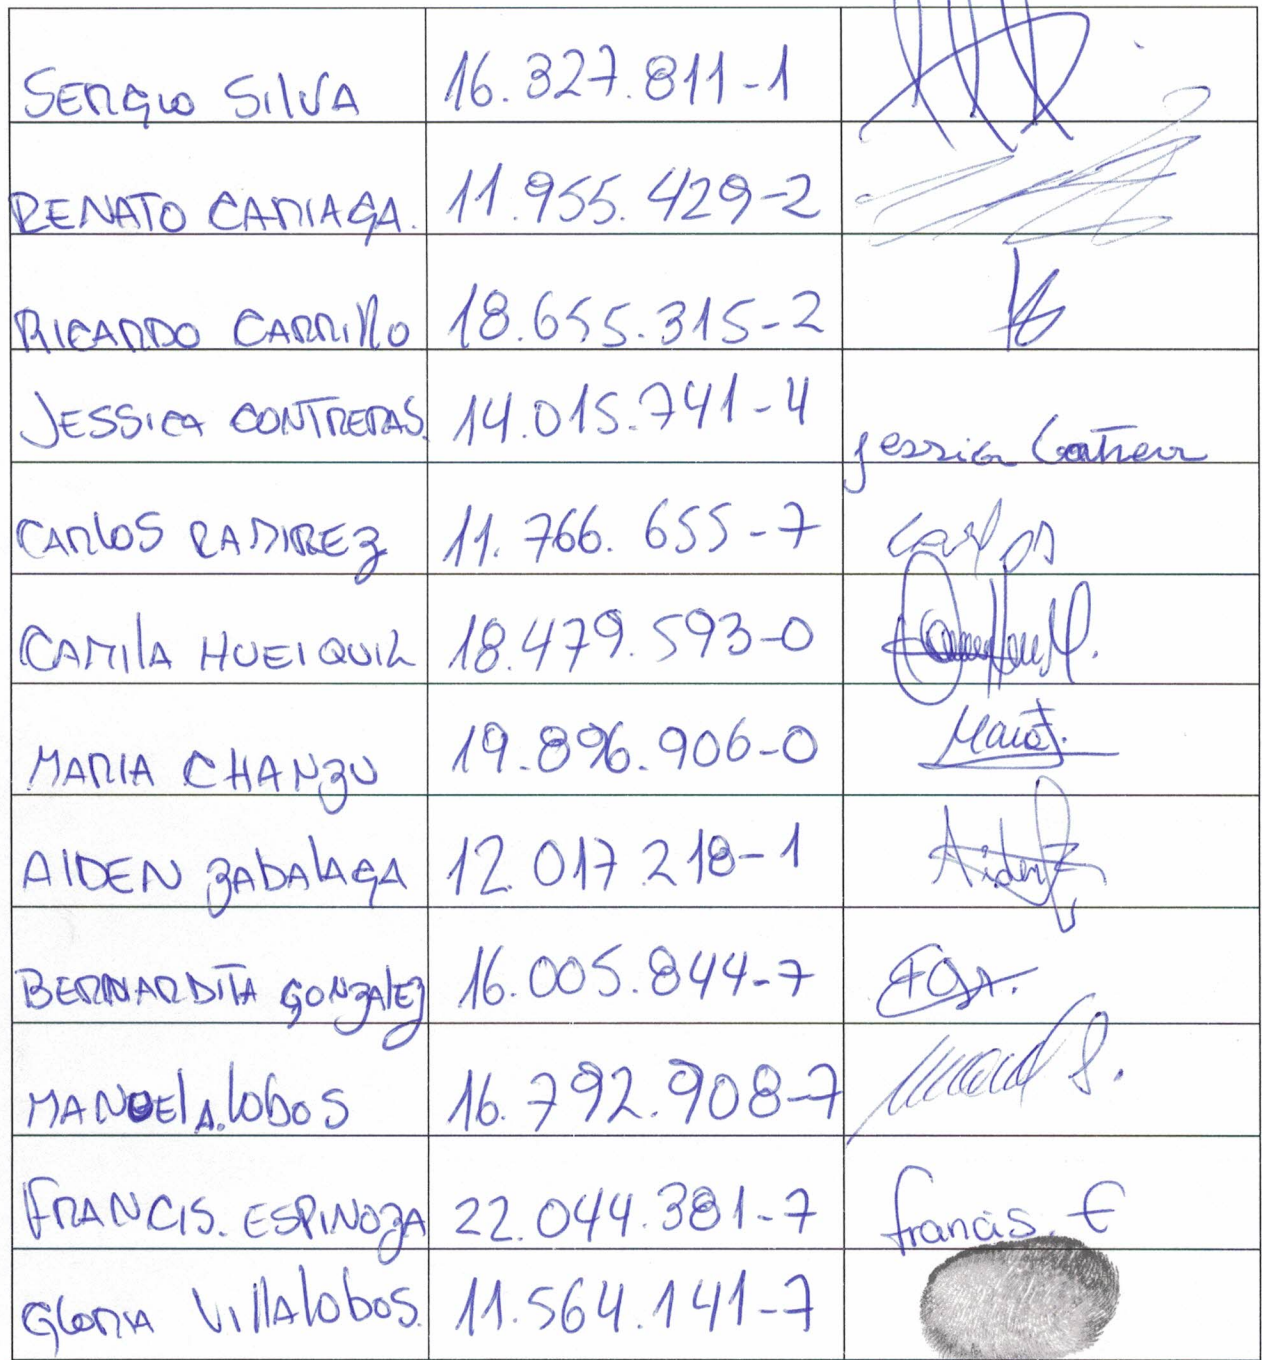 SERGIO SILVA 16.327.811-1
RENATO CARIAGA. 11.955.429-2
RICARDO CARRILLO 18.655.315-2
JESSICA CONTRERAS. 14.015.741-4 Jessica
CARLOS RAMIREZ 11.766.655-7 Carlos
CAMILA HUEIQUIL 18.479.593-0
MARIA CHANZU 19.896.906-0
AIDEN ZABALAGA 12.017.218-1 Aiden Z
BERNARDITA GONZALEZ 16.005.844-7
MANUEL A. LOBOS 16.792.908-7
FRANCIS. ESPINOZA 22.044.381-7 francis. E
GLORIA VILLALOBOS. 11.564.141-7